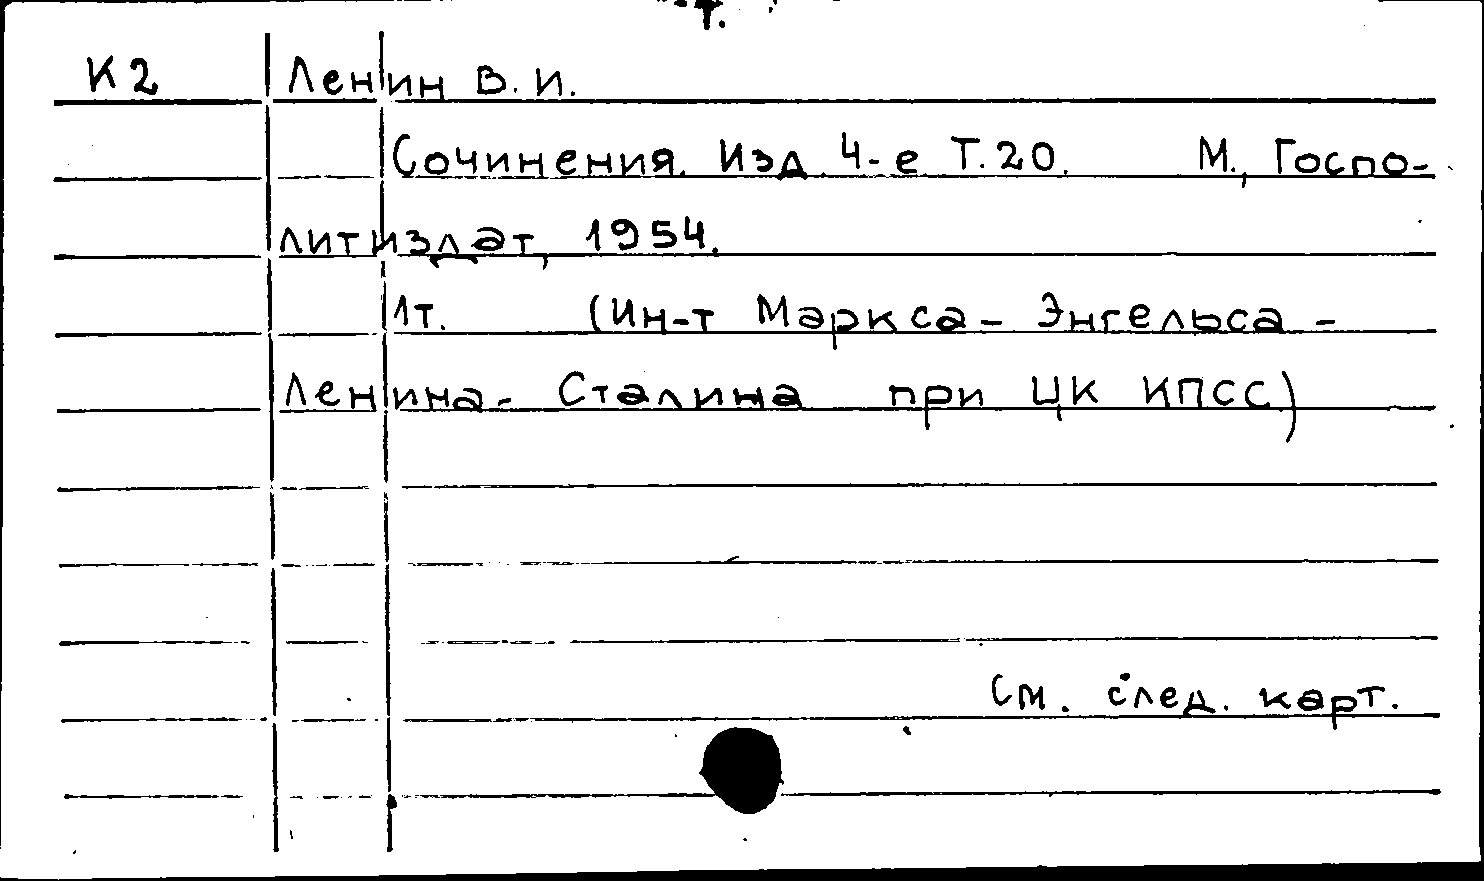 К2 Ленин В. И.
Сочинения. Изд. 4-е Т.20. М., Госпо-
литиздат, 1954.
1т. (Ин-т Маркса - Энгельса -
Ленина - Сталина при ЦК КПСС)
См. след. карт.